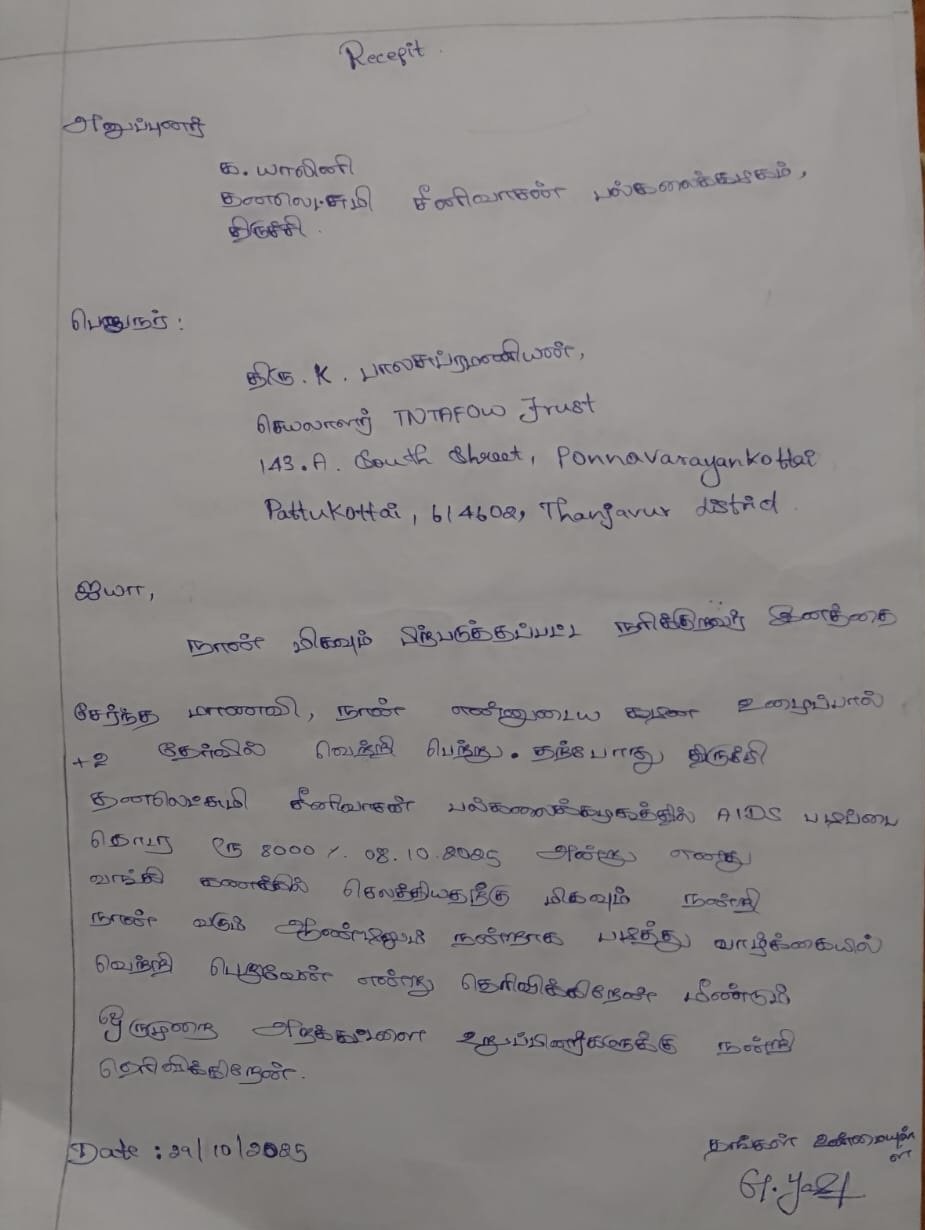 Recepit.
அனுப்புனர்
க. யாலினி
தனலெட்சுமி சீனிவாசன் பல்கலைக்கழகம்,
திருச்சி.
பெறுநர்:
திரு. K. பாலசுப்ரமணியன்,
செயலாளர் TNTAFOW Trust
143.A. South Street, Ponnavarayankottai
Pattukottai, 614602, Thanjavur district.
ஐயா,
நான் மிகவும் பிற்படுத்தப்பட்ட நரிக்குறவர் இனத்தை
சேர்ந்த மாணவி, நான் என்னுடைய கடின உழைப்பால்
+2 தேர்வில் வெற்றி பெற்று. தற்போது திருச்சி
தனலெட்சுமி சீனிவாசன் பல்கலைக்கழகத்தில் AIDS படிப்பை
தொடர ரூ 8000 /. 08.10.2025 அன்று எனது
வங்கி கணக்கில் செலுத்தியதற்கு மிகவும் நன்றி
நான் வரும் ஆண்டிலும் நன்றாக படித்து வாழ்க்கையில்
வெற்றி பெறுவேன் என்று தெரிவிக்கிறேன் மீண்டும்
ஒருமுறை அறக்கட்டளை உறுப்பினர்களுக்கு நன்றி
தெரிவிக்கிறேன்.
Date : 29/10/2025
தங்கள் உண்மையுள்ள